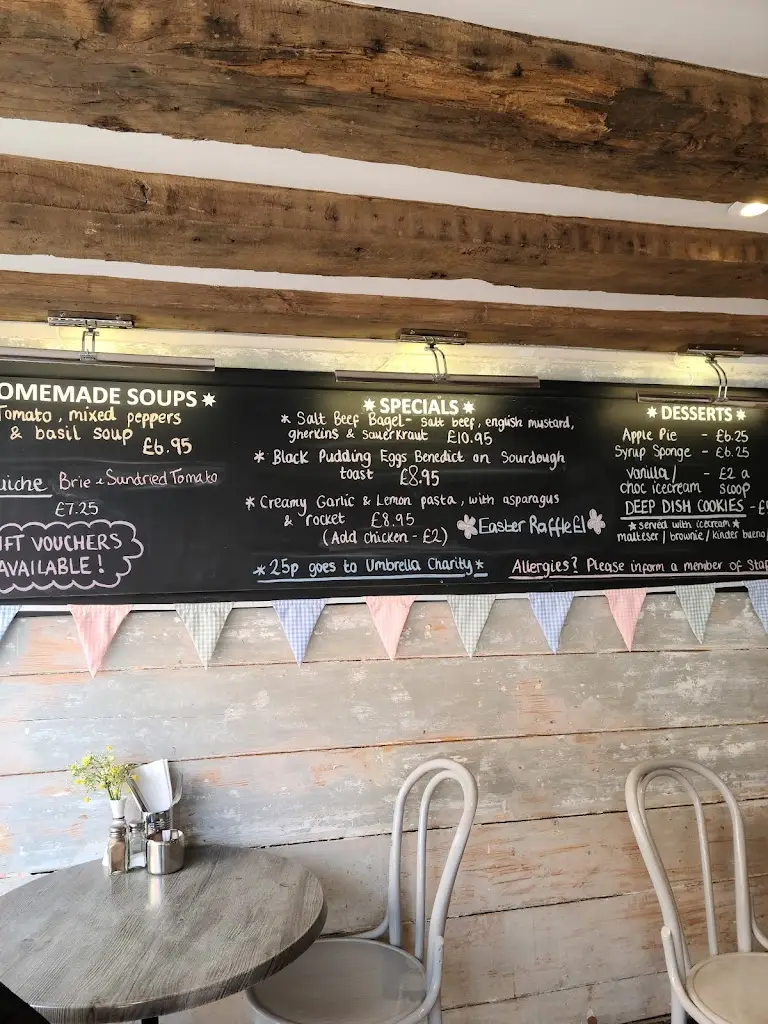 OMEMADE SOUPS
Tomato, mixed peppers
& basil soup £6.95
uiche Brie + Sundried Tomato
£7.25
IFT VOUCHERS
AVAILABLE!
SPECIALS
Salt Beef Bagel - salt beef, english mustard,
gherkins & sauerkraut £10.95
Black Pudding Eggs Benedict on Sourdough
toast £8.95
Creamy Garlic & Lemon pasta, with asparagus
& rocket £8.95
(Add chicken - £2)
Easter Raffle £1
25p goes to Umbrella Charity
DESSERTS
Apple Pie - £6.25
Syrup Sponge - £6.25
Vanilla / - £2 a
choc icecream scoop
DEEP DISH COOKIES
served with icecream
malteser / brownie / kinder bueno
Allergies? Please inform a member of